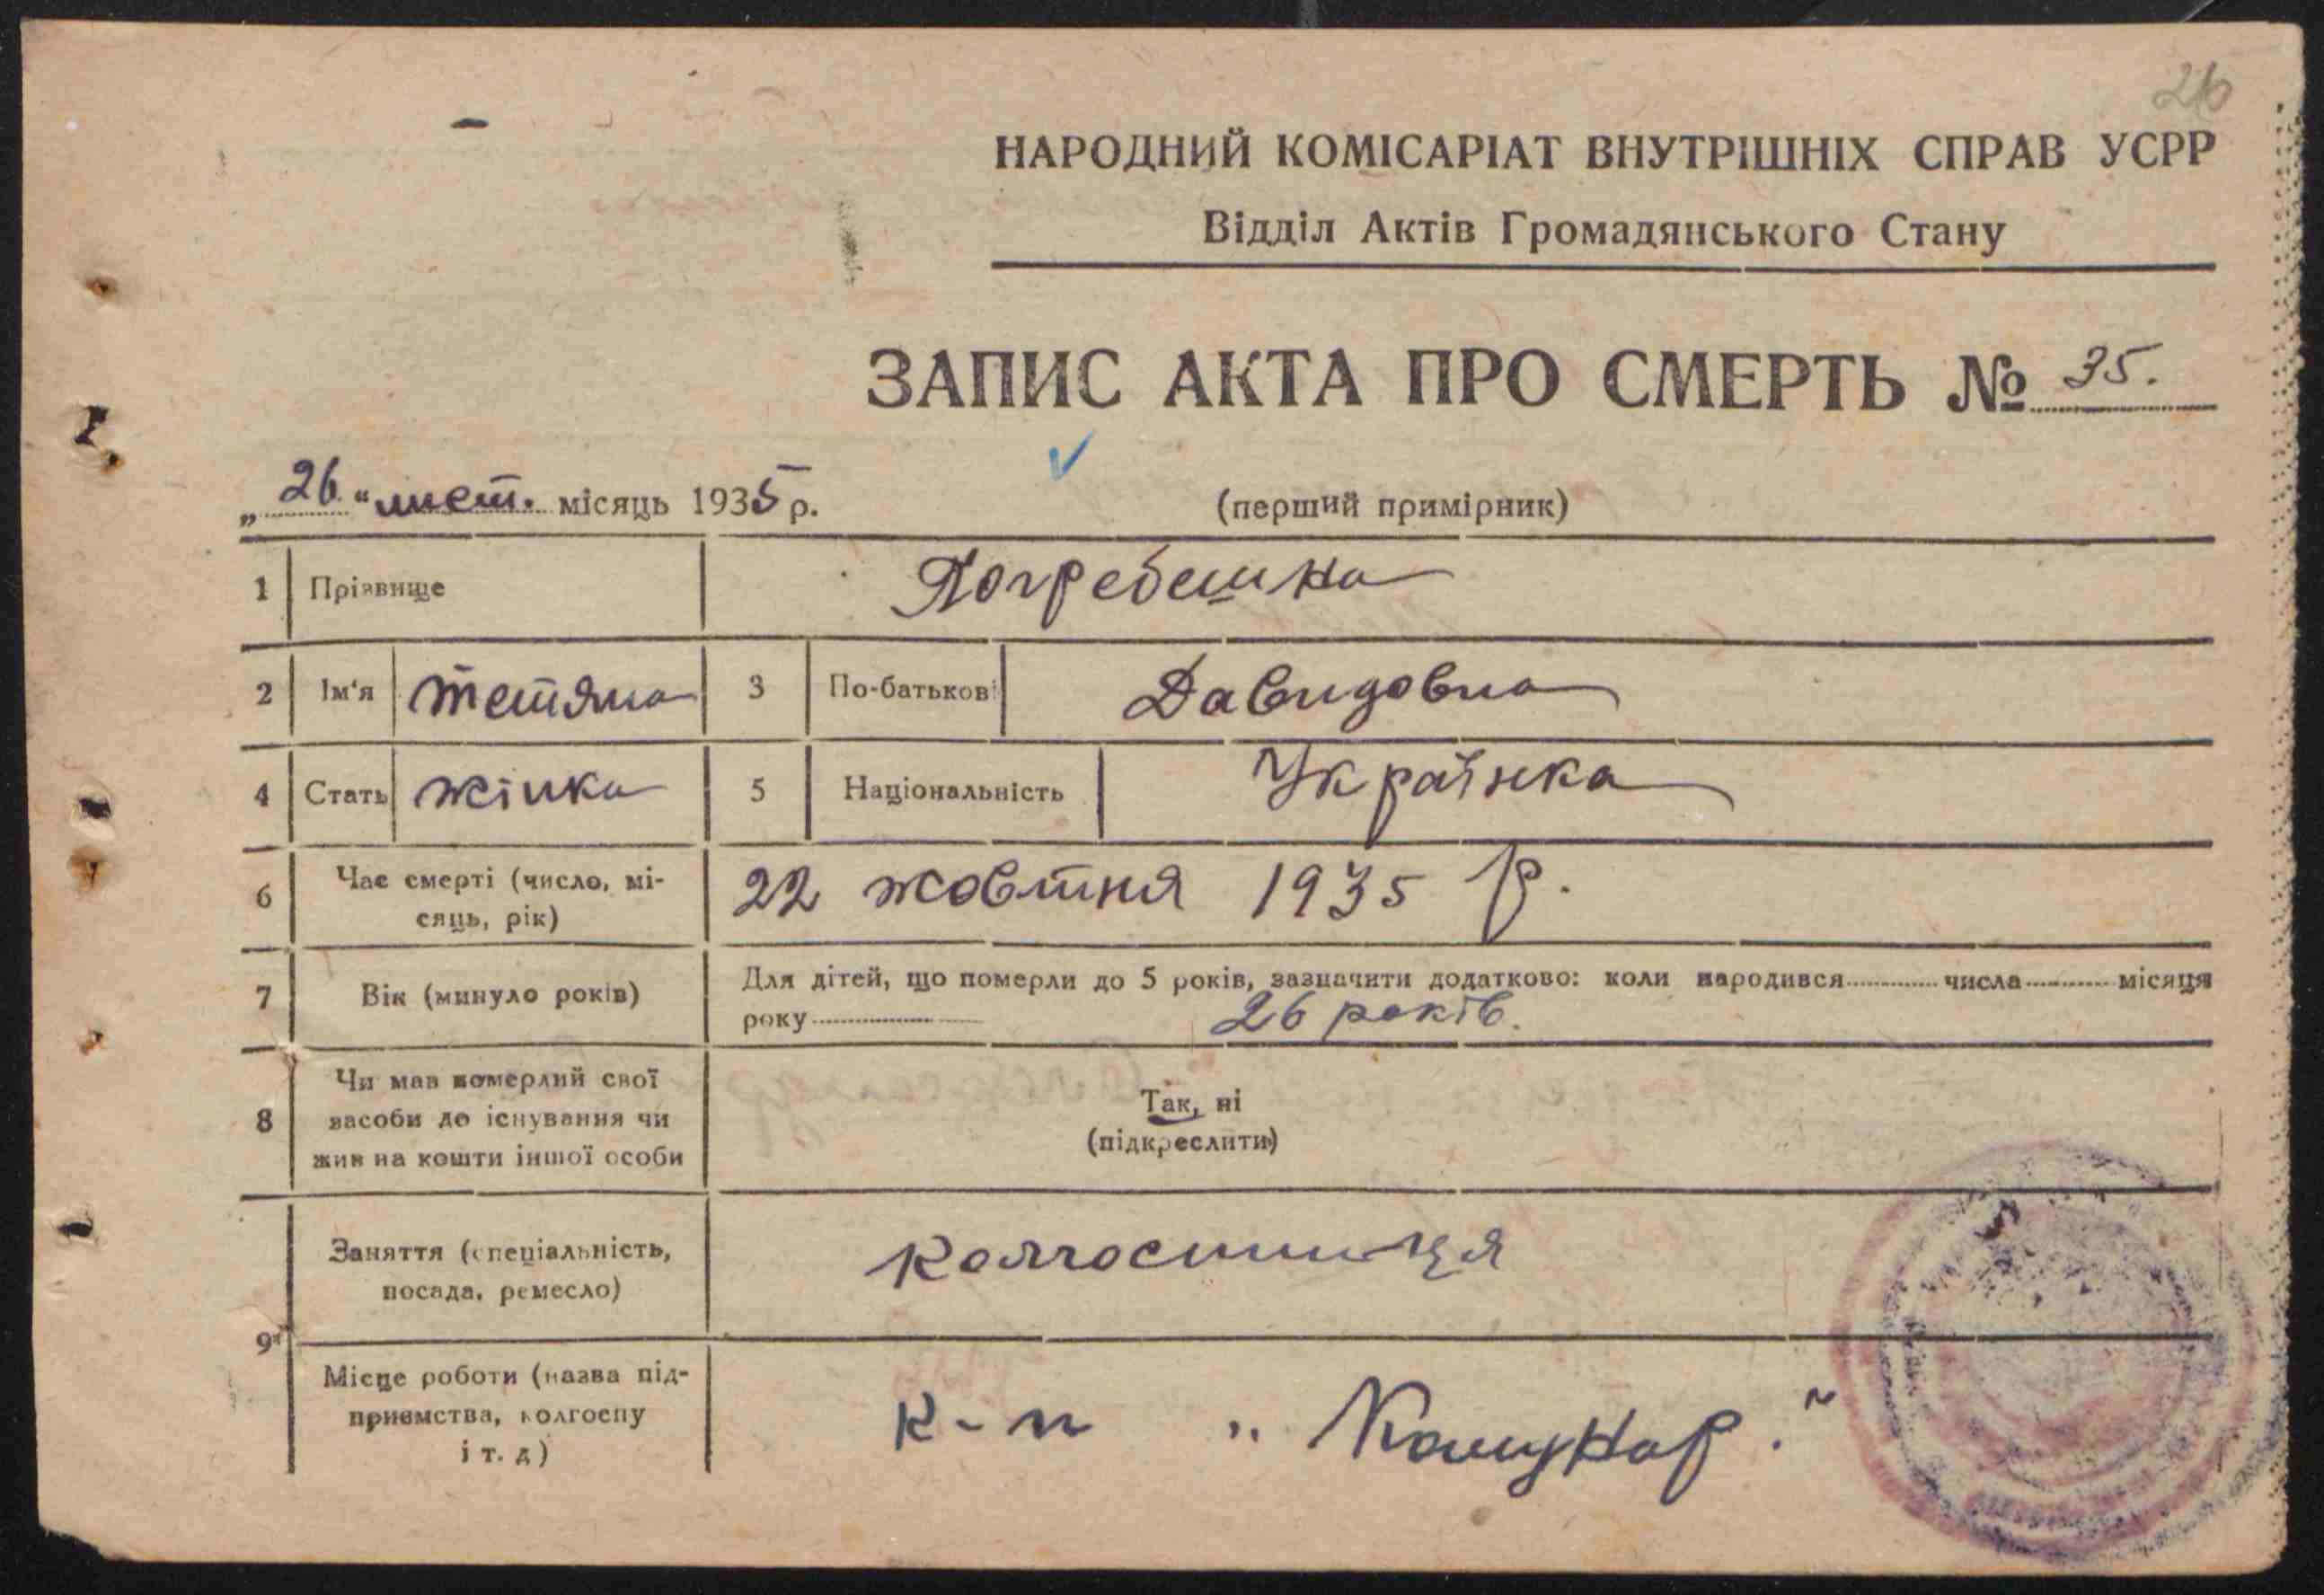 26
НАРОДНИЙ КОМІСАРІАТ ВНУТРІШНІХ СПРАВ УСРР
Відділ Актів Громадянського Стану
ЗАПИС АКТА ПРО СМЕРТЬ № 35.
„26“ лист. місяць 1935 р.
(перший примірник)
1 Прізвище Погребешна
2 Ім'я Тетяна 3 По-батькові Давидовна
4 Стать жінка 5 Національність Українка
6 Час смерті (число, мі-
сяць, рік) 22 жовтня 1935 р.
7 Вік (минуло років) Для дітей, що померли до 5 років, зазначити додатково: коли народився числа місяця
року 26 років.
8 Чи мав померлий свої
засоби до існування чи
жив на кошти іншої особи
Так, ні
(підкреслити)
9 Заняття (спеціальність,
посада, ремесло) Колгоспниця
Місце роботи (назва під-
приємства, колгоспу
і т. д) к-п „Комунар."